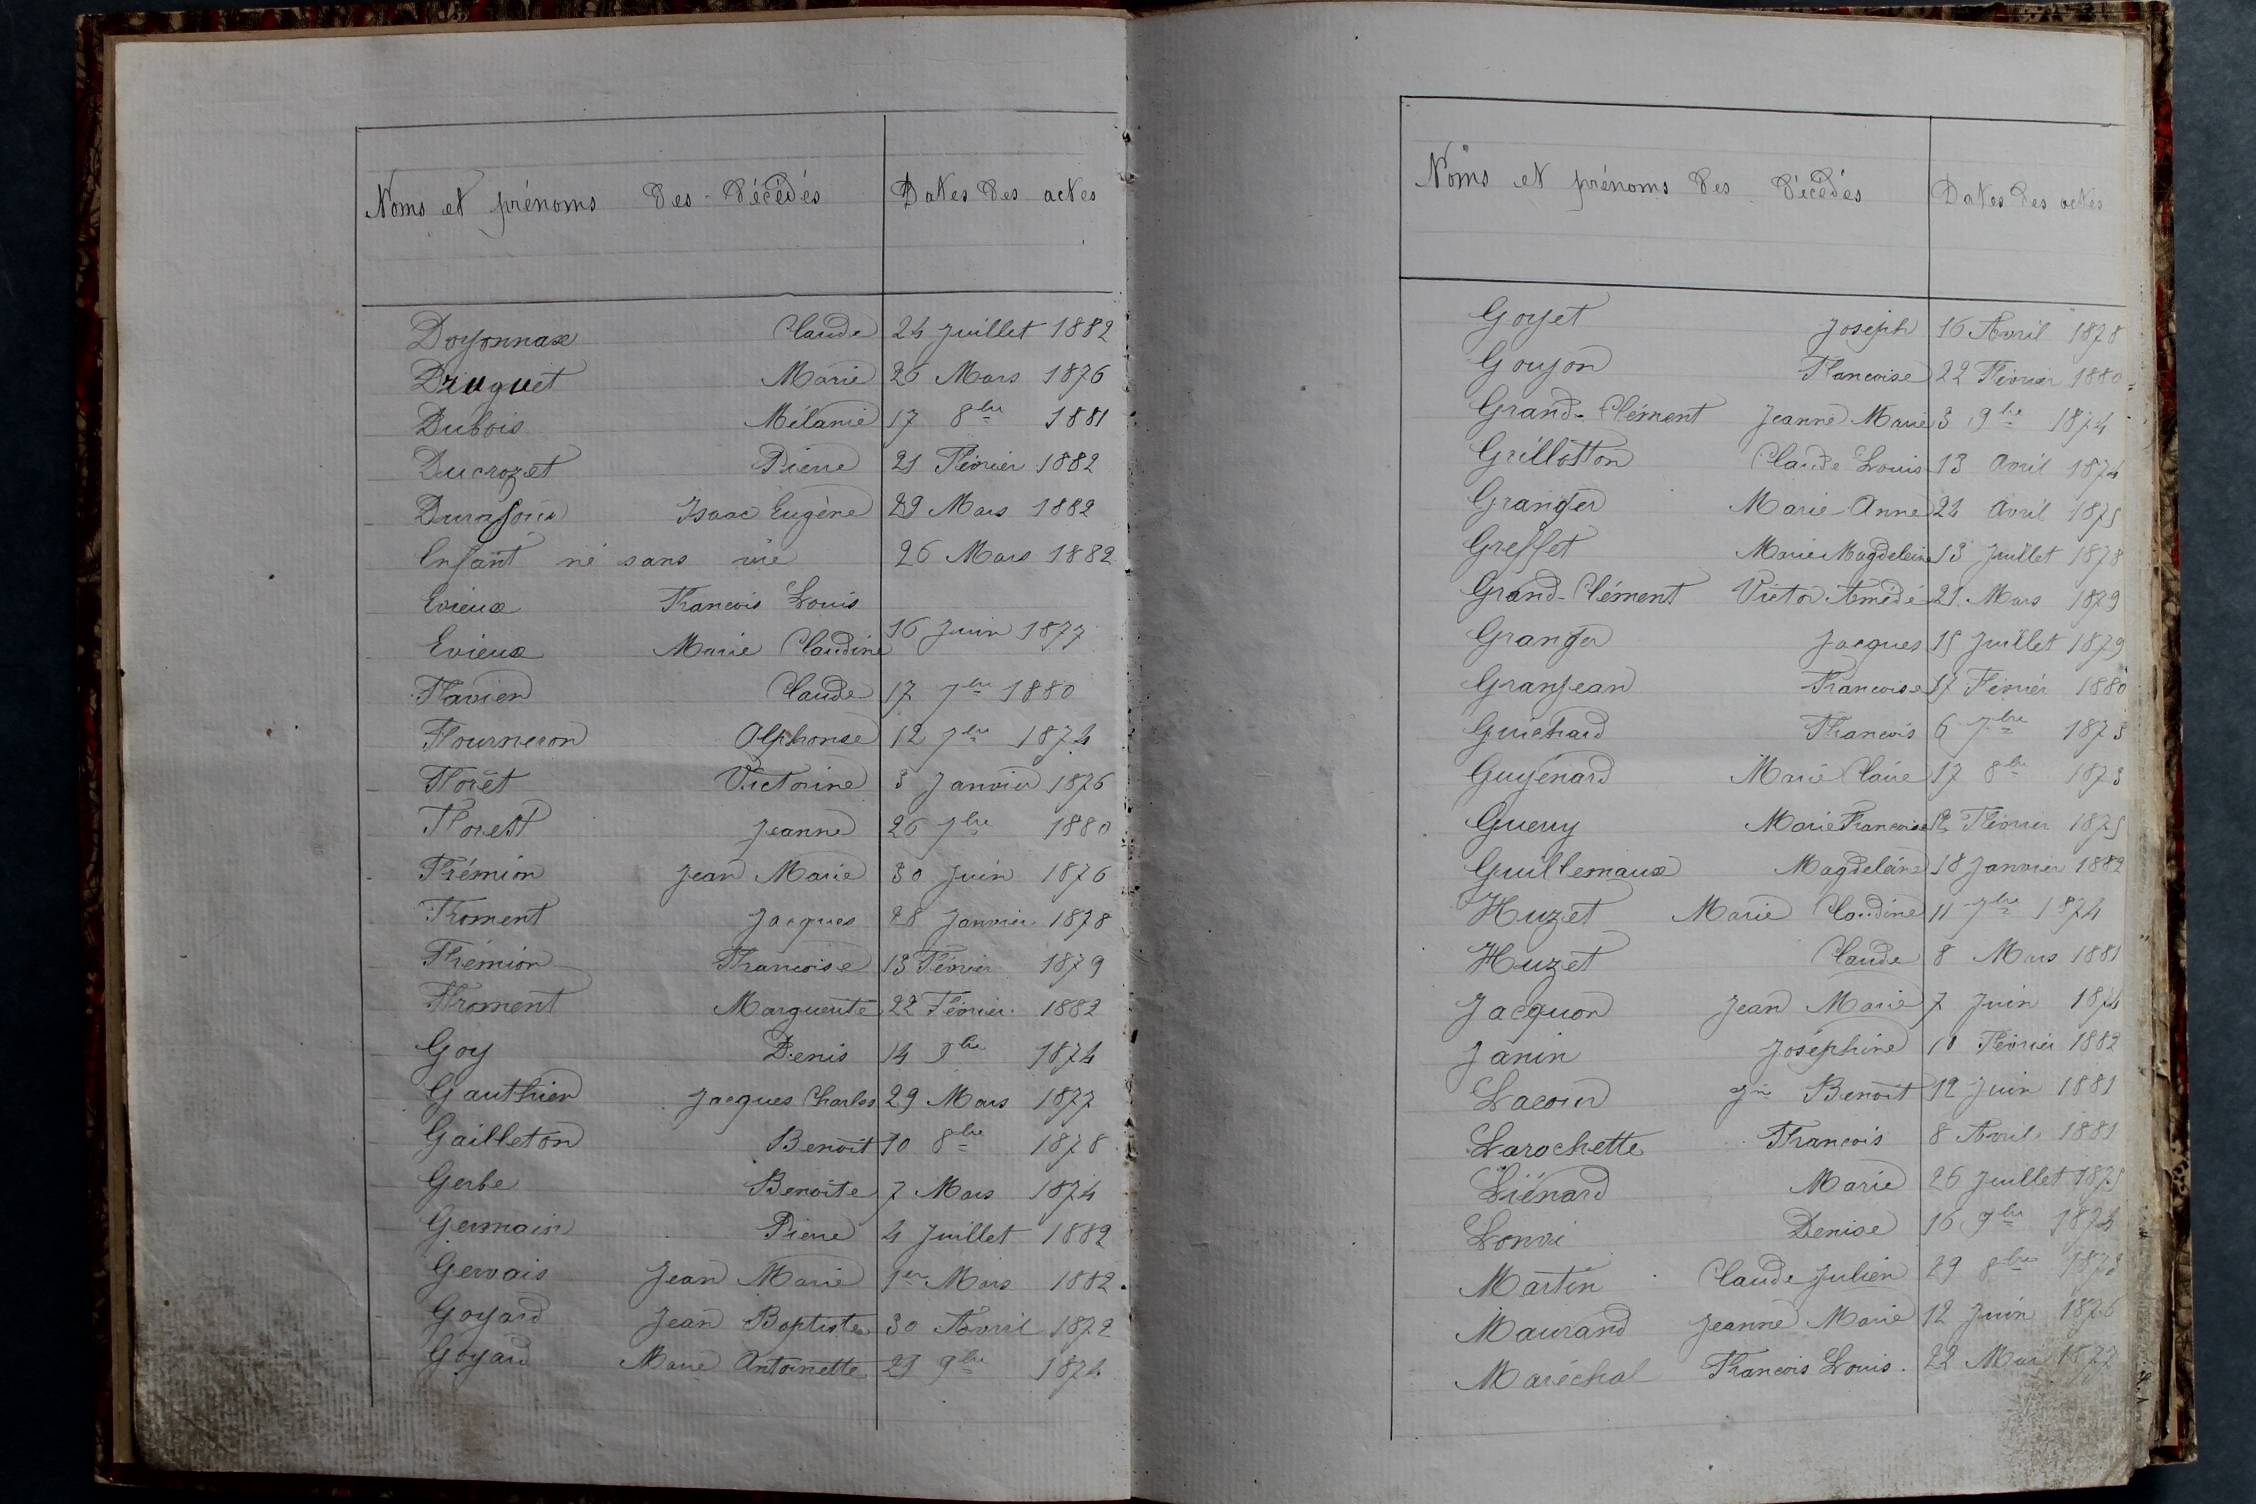 Noms et prénoms des décédés Dates des actes
Doyonnax Claude 24 Juillet 1882
Druguet Marie 26 Mars 1876
Dubois Mélanie 17 8bre 1881
Ducrozet Pierre 21 Février 1882
Isaac Eugène 29 Mars 1882
Enfant né sans vie 26 Mars 1882
Evieux Francois Louis
Evieux Marie Claudine 16 Juin 1877
Flavien Claude 17 7bre 1880
Fourneron Alphonse 12 7bre 1874
Forêt Victorine 3 Janvier 1876
Forest Jeanne 26 7bre 1880
Frémion Jean Marie 30 Juin 1876
Froment Jacques 28 Janvier 1878
Frémion Francoise 13 Février 1879
Froment Marguerite 22 Février 1882
Goy Denis 14 9bre 1874
Gauthier Jacques Charles 29 Mars 1877
Gailleton Benoit 10 8bre 1878
Gerbe Benoite 7 Mars 1874
Germain Pierre 4 Juillet 1882
Gervais Jean Marie 1er Mars 1882.
Goyard Jean Baptiste 30 Avril 1872
Goyard Marie Antoinette 21 9bre 1874
Noms et prénoms des décédés Dates des actes
Goyet Joseph 16 Avril 1878
Goujon Francoise 22 Février 1880
Grand-Clément Jeanne Marie 3 9bre 1874
Grillotton Claude Louis 13 Avril 1874
Granger Marie-Anne 24 Avril 1875
Greffet Marie Magdeleine 13 Juillet 1878
Grand-Clément Victor Amédé 21 Mars 1879
Granger Jacques 15 Juillet 1879
Granjean Francoise 17 Février 1880
Guichard Francois 6 7bre 1873
Guyénard Marie Claire 17 8bre 1873
Guerry Marie Francoise 12 Février 1875
Guillemaux Magdeleine 18 Janvier 1882
Huzet Marie Claudine 11 7bre 1874
Huzet Claude 8 Mars 1881
Jacquon Jean Marie 7 Juin 1874
Janin Joséphine 10 Février 1882
Lacour Jn Benoit 12 Juin 1881
Larochette Francois 8 Avril 1881
Liénard Marie 26 Juillet 1875
Denise 16 9bre 1874
Martin Claude Julien 29 8bre 1873
Maurand Jeanne Marie 12 Juin 1876
Maréchal Francois Louis. 22 Mars 1877